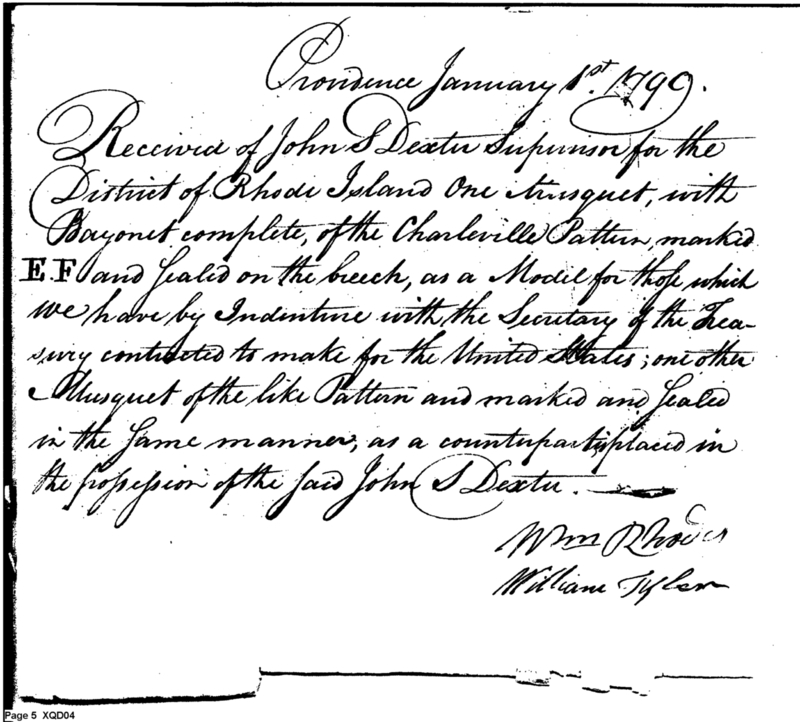 Providence January 1st. 1799.
Received of John S Dexter Supervisor for the
District of Rhode Island One Musquet, with
Bayonet complete, of the Charleville Pattern, marked
E.F and sealed on the breech, as a Model for those which
we have by Indenture with the Secretary of the Trea-
sury contracted to make for the United States; one other
Musquet of the like Pattern and marked and sealed
in the same manner, as a counterpart is placed in
the possession of the said John S Dexter.
Wm Rhodes
William Tyler
Page 5 XQD04